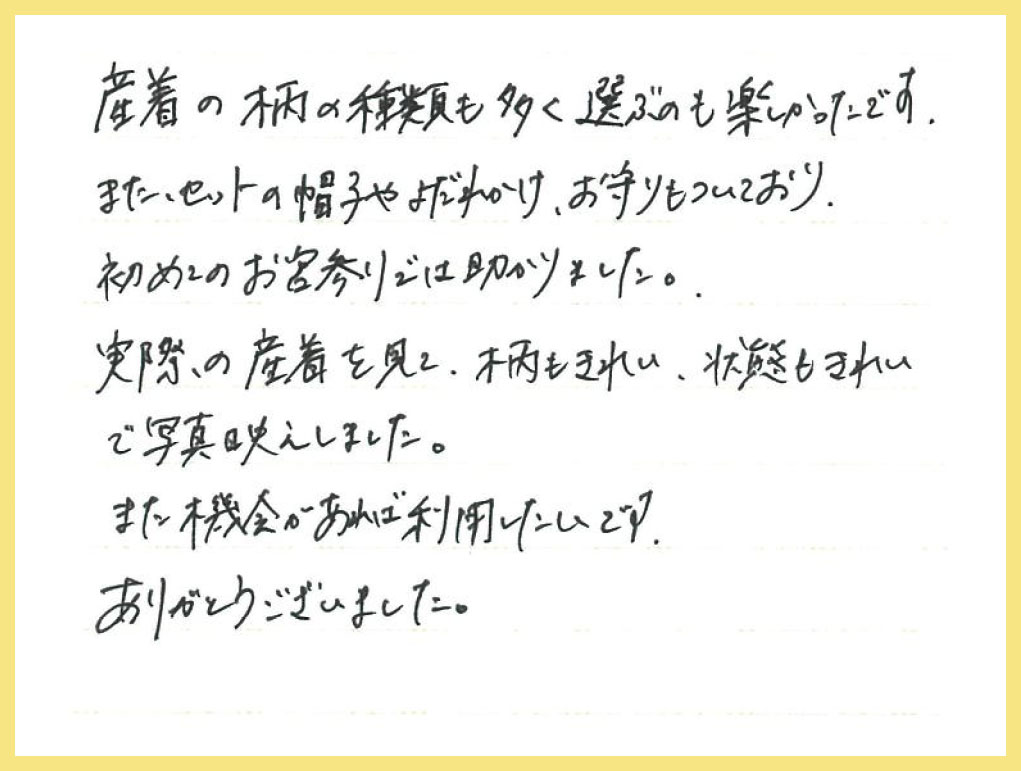 産着の柄の種類も多く選ぶのも楽しかったです.
また、セットの帽子やよだれかけ、お守りもついており.
初めてのお宮参りでは助かりました。.
実際、の産着を見て、柄もきれい、状態もきれい
で写真映えしました。
また機会があれば利用したいです.
ありがとうございました。